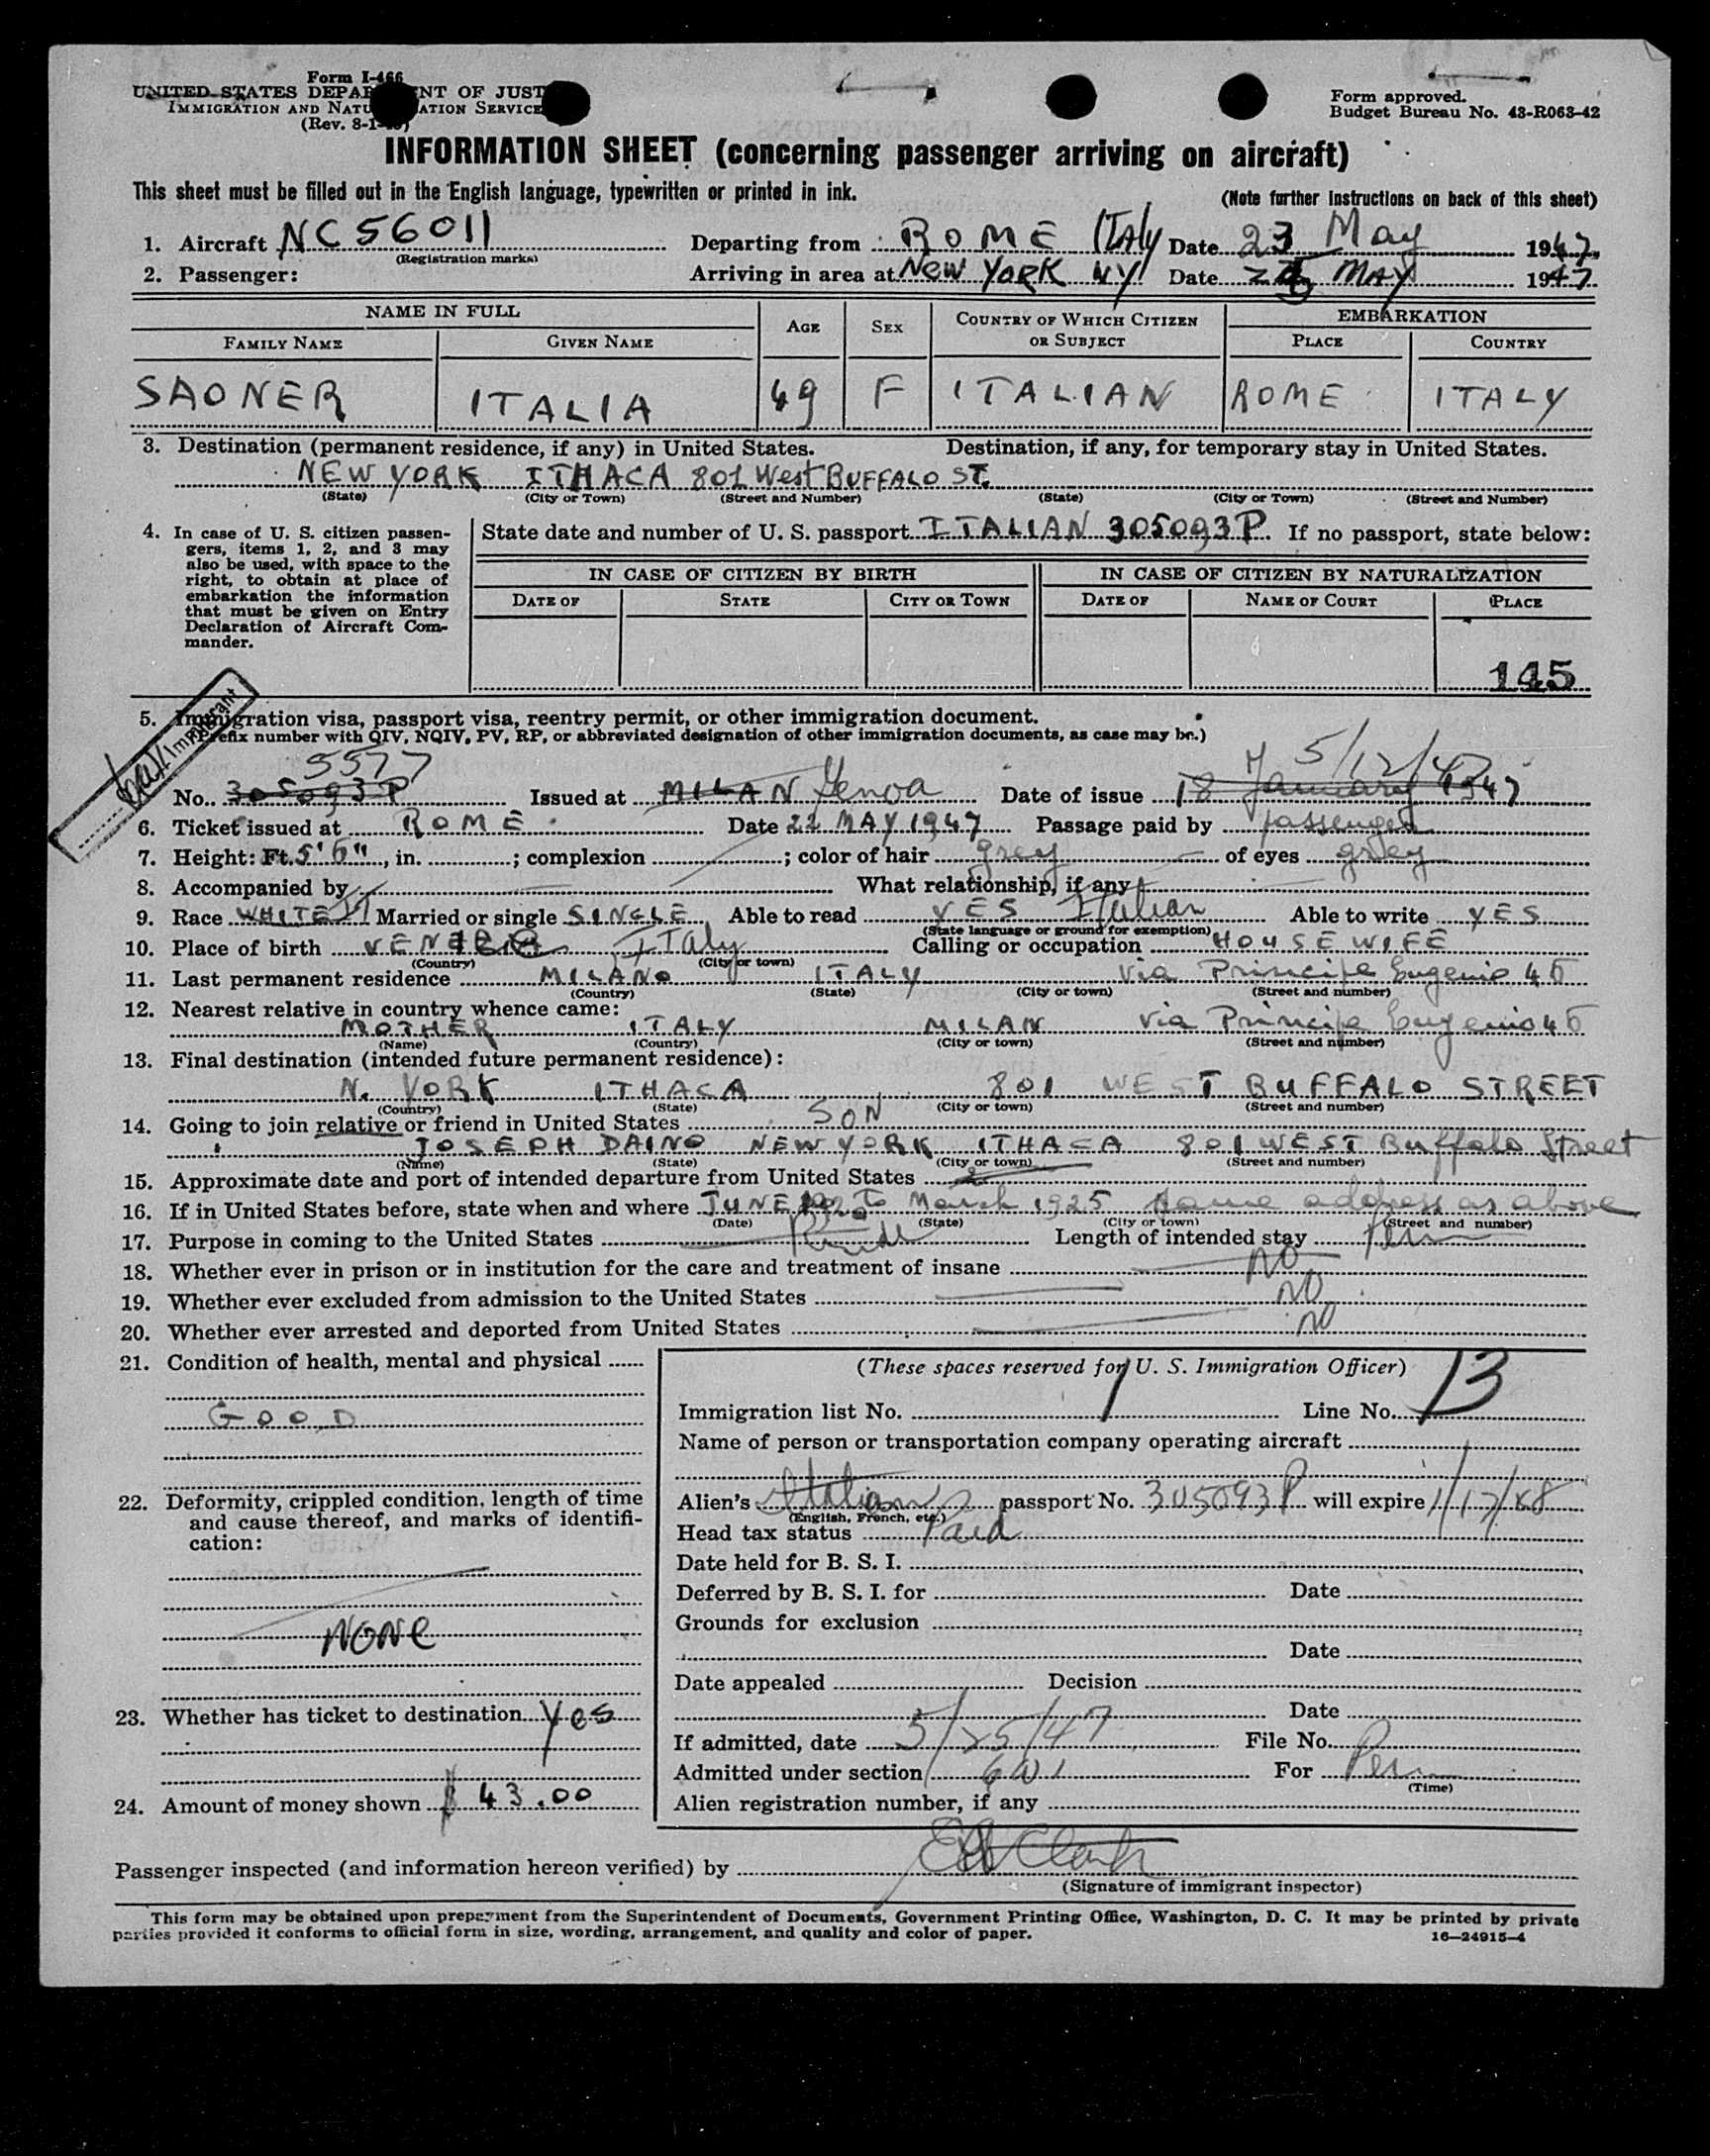 Form I-466
UNITED STATES DEPAR NT OF JUST
IMMIGRATION AND NATU ATION SERVICE
(Rev. 8-1-
Form approved.
Budget Bureau No. 43-R063-42
INFORMATION SHEET (concerning passenger arriving on aircraft)
This sheet must be filled out in the English language, typewritten or printed in ink.
(Note further instructions on back of this sheet)
1. Aircraft NC56011 Departing from ROME ITALY Date 23 May 1947
(Registration marks)
2. Passenger: Arriving in area at NEW YORK NY Date MAY 1947
NAME IN FULL AGE SEX COUNTRY OF WHICH CITIZEN OR SUBJECT EMBARKATION
FAMILY NAME GIVEN NAME PLACE COUNTRY
SAONER ITALIA 49 F ITALIAN ROME ITALY
3. Destination (permanent residence, if any) in United States. Destination, if any, for temporary stay in United States.
NEW YORK ITHACA 801 West BUFFALO ST.
(State) (City or Town) (Street and Number) (State) (City or Town) (Street and Number)
4. In case of U. S. citizen passen-
gers, items 1, 2, and 3 may
also be used, with space to the
right, to obtain at place of
embarkation the information
that must be given on Entry
Declaration of Aircraft Com-
mander.
State date and number of U. S. passport ITALIAN 305093P. If no passport, state below:
IN CASE OF CITIZEN BY BIRTH IN CASE OF CITIZEN BY NATURALIZATION
DATE OF STATE CITY OR TOWN DATE OF NAME OF COURT PLACE
145
Immigrant
5. Immigration visa, passport visa, reentry permit, or other immigration document.
(Prefix number with QIV, NQIV, PV, RP, or abbreviated designation of other immigration documents, as case may be.)
5577 5/12/47
No. 305093P Issued at MILAN Genoa Date of issue 18 January 1947
6. Ticket issued at ROME Date 22 MAY 1947 Passage paid by passenger
7. Height: Ft. 5'6", in. ; complexion ; color of hair grey of eyes grey
8. Accompanied by What relationship, if any
9. Race WHITE IT Married or single SINGLE Able to read YES Italian Able to write YES
(State language or ground for exemption)
10. Place of birth ITaly Calling or occupation HOUSEWIFE
(Country) (City or town)
11. Last permanent residence MILANO ITALY Via Principe Eugenio 45
(Country) (State) (City or town) (Street and number)
12. Nearest relative in country whence came:
MOTHER ITALY MILAN Via Principe Eugenio 45
(Name) (Country) (City or town) (Street and number)
13. Final destination (intended future permanent residence):
N. YORK ITHACA 801 WEST BUFFALO STREET
(Country) (State) (City or town) (Street and number)
14. Going to join relative or friend in United States SON
JOSEPH DAINO NEW YORK ITHACA 801 WEST Buffalo Street
(Name) (State) (City or town) (Street and number)
15. Approximate date and port of intended departure from United States
16. If in United States before, state when and where JUNE 1920 To March 1925 Same address as above
(Date) (State) (City or town) (Street and number)
17. Purpose in coming to the United States Length of intended stay Perm
18. Whether ever in prison or in institution for the care and treatment of insane NO
19. Whether ever excluded from admission to the United States NO
20. Whether ever arrested and deported from United States NO
21. Condition of health, mental and physical
GOOD
22. Deformity, crippled condition, length of time
and cause thereof, and marks of identifi-
cation:
NONE
23. Whether has ticket to destination Yes
24. Amount of money shown $ 43.00
(These spaces reserved for U. S. Immigration Officer)
Immigration list No. 1 Line No. 13
Name of person or transportation company operating aircraft
Alien's Italian passport No. 305093P will expire 1/17/48
(English, French, etc.)
Head tax status Paid
Date held for B. S. I.
Deferred by B. S. I. for Date
Grounds for exclusion
Date
Date appealed Decision
Date
If admitted, date 5/25/47 File No.
Admitted under section For Perm
(Time)
Alien registration number, if any
Passenger inspected (and information hereon verified) by
(Signature of immigrant inspector)
This form may be obtained upon prepayment from the Superintendent of Documents, Government Printing Office, Washington, D. C. It may be printed by private
parties provided it conforms to official form in size, wording, arrangement, and quality and color of paper.
16—24915-4